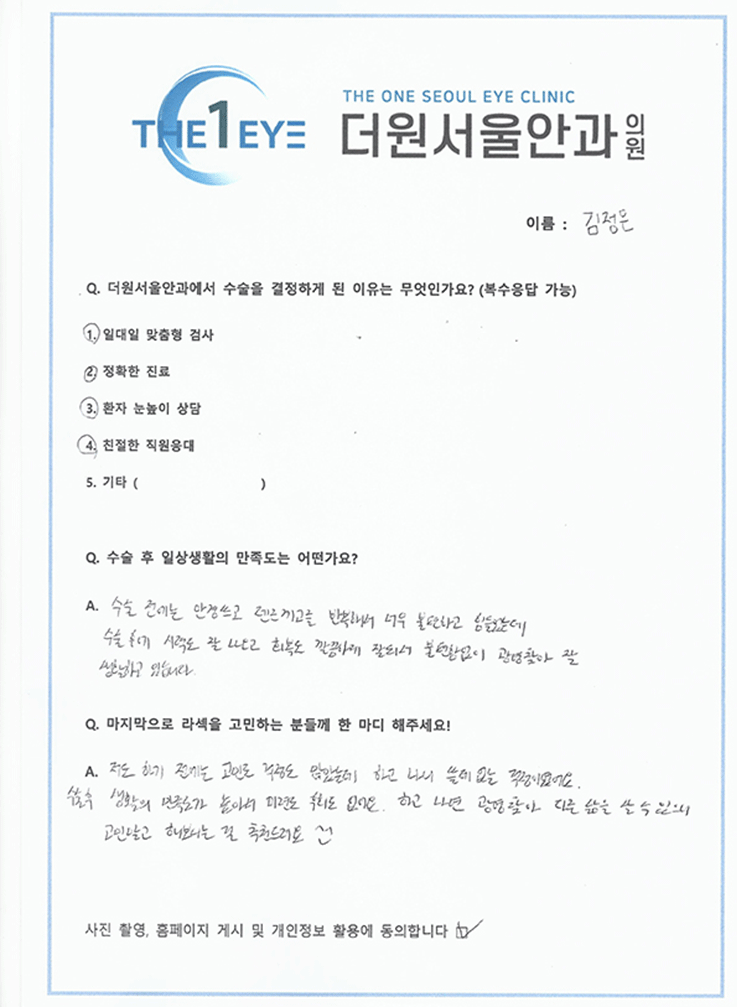 THE 1 EYE
THE ONE SEOUL EYE CLINIC
더원서울안과의원
이름 : 김정은
Q. 더원서울안과에서 수술을 결정하게 된 이유는 무엇인가요? (복수응답 가능)
1. 일대일 맞춤형 검사
2. 정확한 진료
3. 환자 눈높이 상담
4. 친절한 직원응대
5. 기타 ( )
Q. 수술 후 일상생활의 만족도는 어떤가요?
A. 수술 전에는 안경쓰고 렌즈끼고를 반복해서 너무 불편하고 힘들었는데
수술 후에 시력도 잘 나오고 회복도 깔끔하게 잘되서 불편함없이 광명찾아 잘
생활하고 있습니다.
Q. 마지막으로 라섹을 고민하는 분들께 한 마디 해주세요!
A. 저도 하기 전에는 고민도 걱정도 많았는데 하고 나니 쓸데없는 걱정이었어요.
수술후 생활의 만족도가 높아서 미련도 후회도 없어요. 하고 나면 광명찾아 다른 삶을 살 수 있으니
고민말고 해보시는 걸 추천드려요
사진 촬영, 홈페이지 게시 및 개인정보 활용에 동의합니다